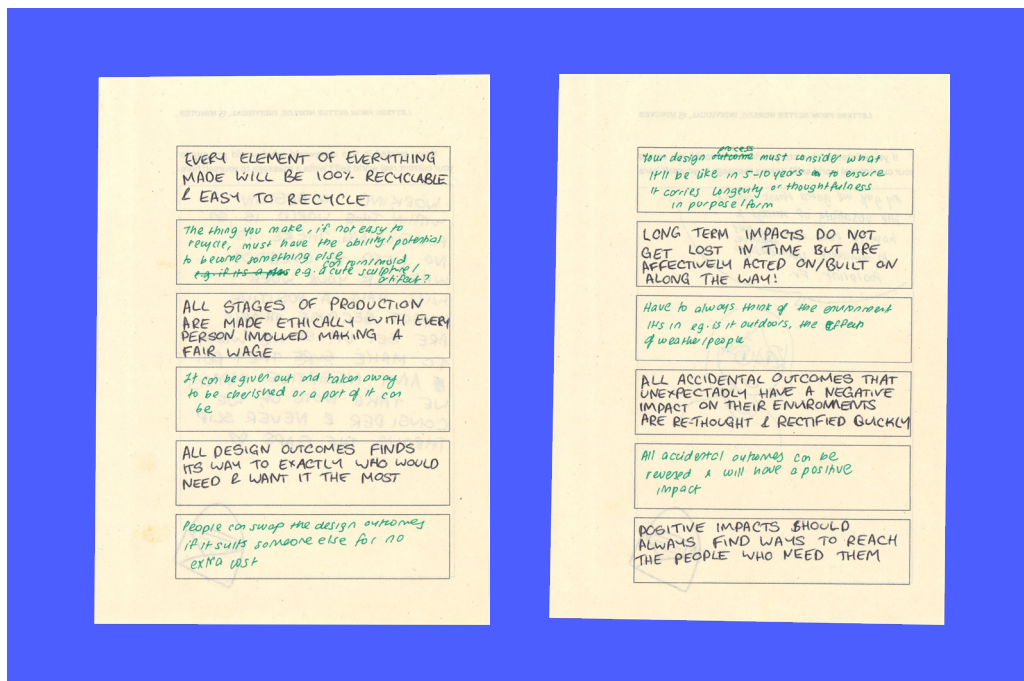 EVERY ELEMENT OF EVERYTHING
MADE WILL BE 100% RECYCLABLE
& EASY TO RECYCLE
The thing you make, if not easy to
recycle, must have the ability/potential
to become something else
can form/mold
e.g. if its a plas e.g. a cute sculpture/
artifact?
ALL STAGES OF PRODUCTION
ARE MADE ETHICALLY WITH EVERY
PERSON INVOLVED MAKING A
FAIR WAGE
It can be given out and taken away
to be cherished or a part of it can
be
ALL DESIGN OUTCOMES FINDS
ITS WAY TO EXACTLY WHO WOULD
NEED & WANT IT THE MOST
People can swap the design outcomes
if it suits someone else for no
extra cost
process
Your design outcome must consider what
it'll be like in 5-10 years to ensure
it carries longevity or thoughtfulness
in purpose/form
LONG TERM IMPACTS DO NOT
GET LOST IN TIME BUT ARE
AFFECTIVELY ACTED ON/BUILT ON
ALONG THE WAY!
Have to always think of the environment
its in eg. is it outdoors, the effect
of weather/people
ALL ACCIDENTAL OUTCOMES THAT
UNEXPECTADLY HAVE A NEGATIVE
IMPACT ON THEIR ENVIROMENTS
ARE RE-THOUGHT & RECTIFIED QUICKLY
All accidental outcomes can be
revered & will have a positive
impact
POSITIVE IMPACTS SHOULD
ALWAYS FIND WAYS TO REACH
THE PEOPLE WHO NEED THEM